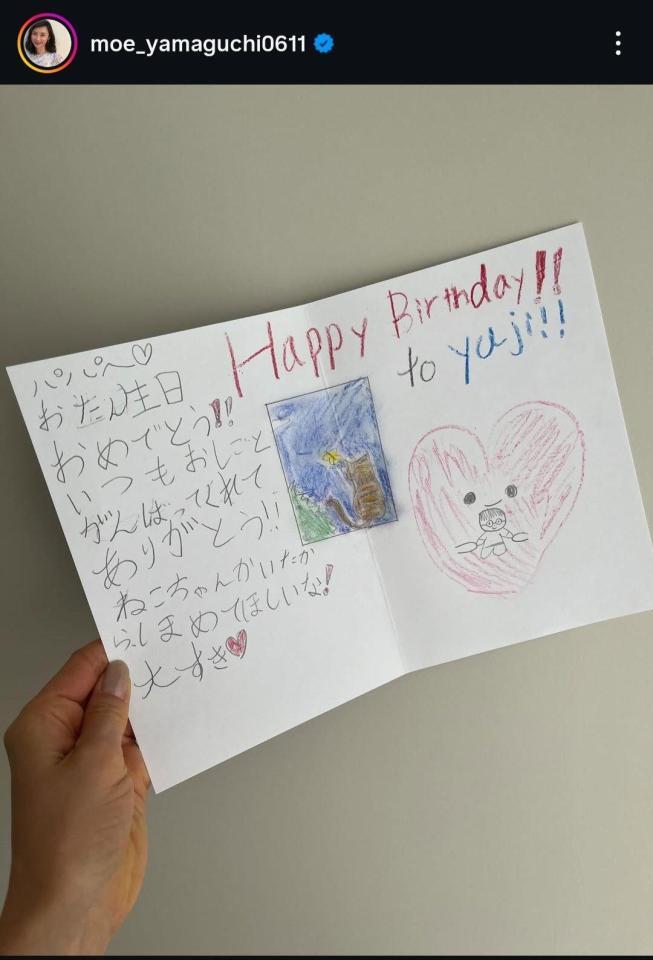 moe_yamaguchi0611
Happy Birthday!!
to yuji!!!
パパへ♡
おたん生日
おめでとう!!
いつもおしごと
がんばってくれて
ありがとう!!
ねこちゃんかいたか
らしまめてほしいな!
大すき♥